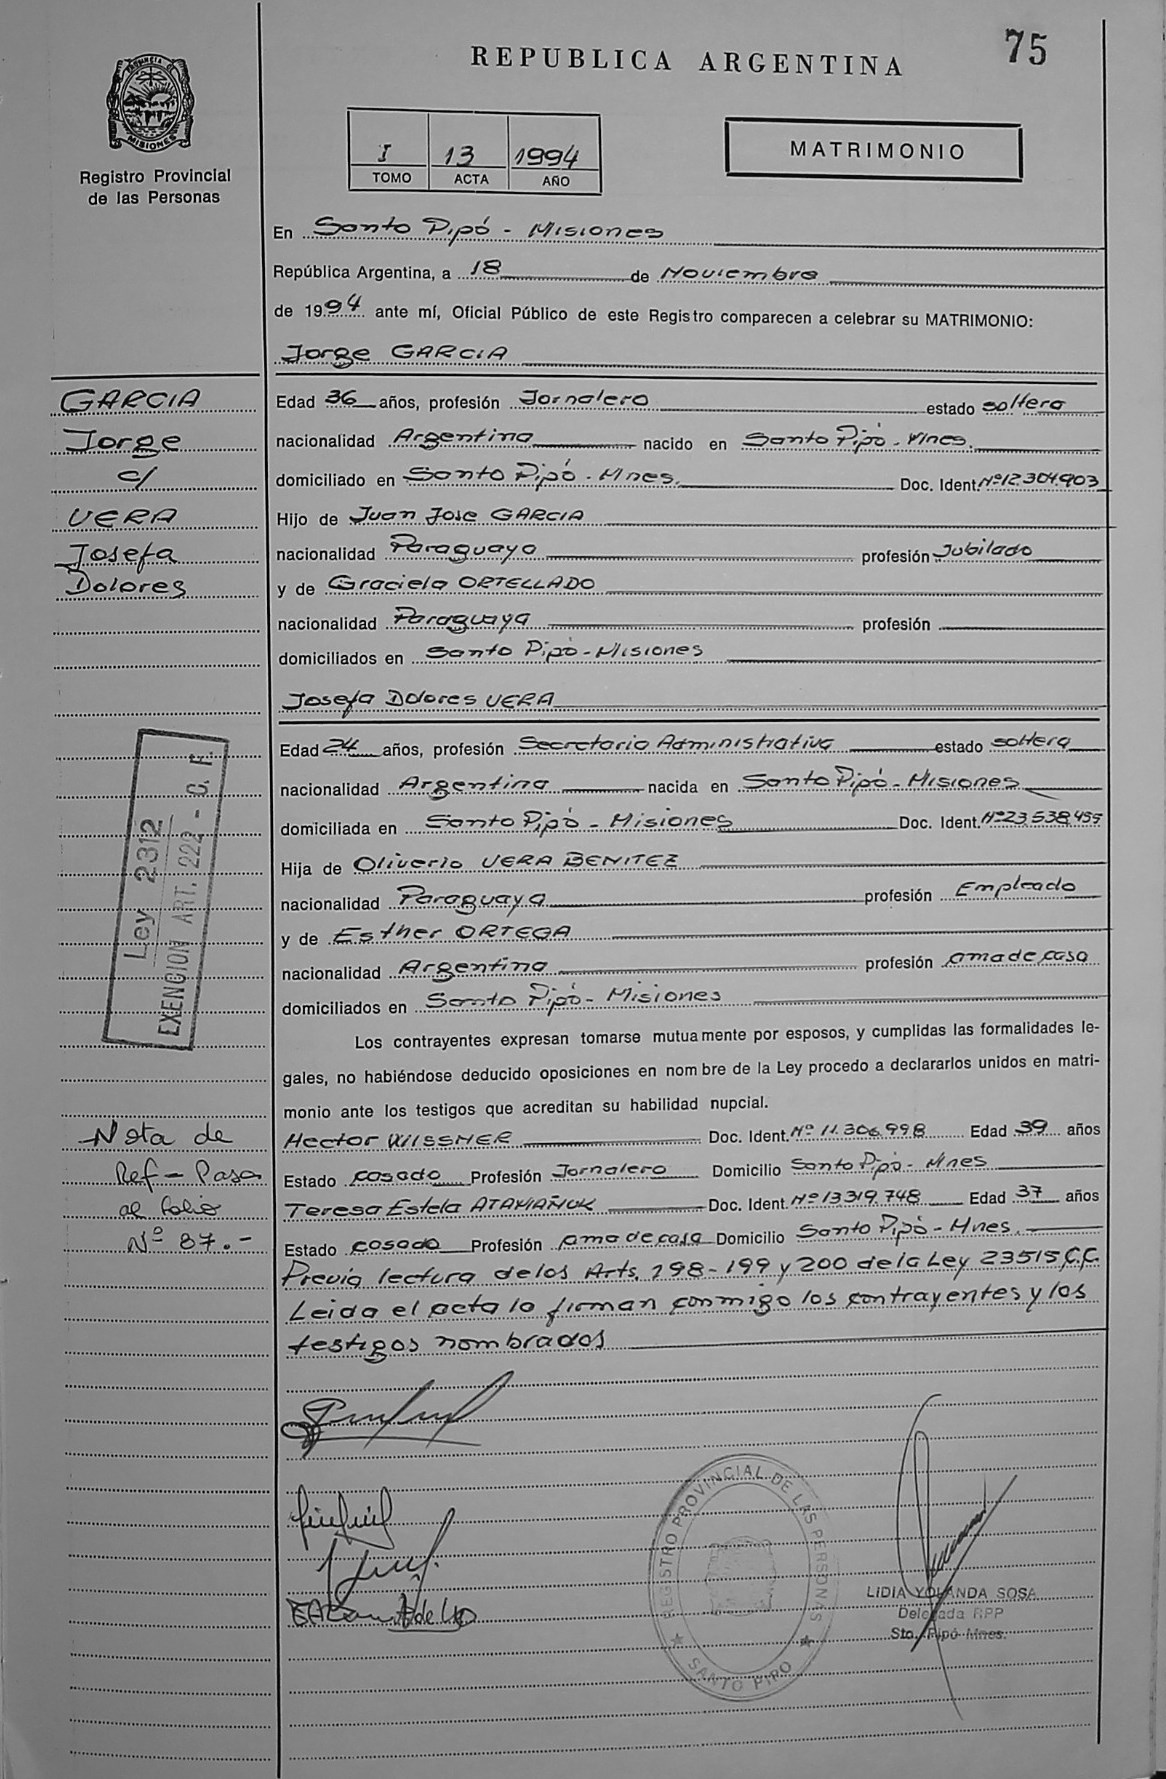 75
REPUBLICA ARGENTINA
PROVINCIA DE MISIONES
Registro Provincial
de las Personas
I 13 1994
TOMO ACTA AÑO
MATRIMONIO
En Santo Pipó - Misiones
República Argentina, a 18 de Noviembre
de 1994 ante mí, Oficial Público de este Registro comparecen a celebrar su MATRIMONIO:
Jorge GARCIA
GARCIA
Jorge
c/
VERA
Josefa
Dolores
Edad 36 años, profesión Jornalero estado soltero
nacionalidad Argentina nacido en Santo Pipó - Mnes.
domiciliado en Santo Pipó - Mnes. Doc. Ident. Nº 12.304.903
Hijo de Juan Jose GARCIA
nacionalidad Paraguaya profesión Jubilado
y de Graciela ORTELLADO
nacionalidad Paraguaya profesión
domiciliados en Santo Pipó - Misiones
Josefa Dolores VERA
Edad 24 años, profesión Secretaria Administrativa estado soltera
nacionalidad Argentina nacida en Santo Pipó - Misiones
domiciliada en Santo Pipó - Misiones Doc. Ident. Nº 23.538.455
Hija de Oliverio VERA BENITEZ
nacionalidad Paraguaya profesión Empleado
y de Esther ORTEGA
nacionalidad Argentina profesión ama de casa
domiciliados en Santo Pipó - Misiones
Ley 2312
EXENCION ART. 222 - C. F.
Los contrayentes expresan tomarse mutuamente por esposos, y cumplidas las formalidades le-
gales, no habiéndose deducido oposiciones en nombre de la Ley procedo a declararlos unidos en matri-
monio ante los testigos que acreditan su habilidad nupcial.
Hector WISSNER Doc. Ident. Nº 11.306.998 Edad 39 años
Estado casado Profesión Jornalero Domicilio Santo Pipó - Mnes
Teresa Estela ATAMAÑUK Doc. Ident. Nº 13319.748 Edad 37 años
Estado casada Profesión ama de casa Domicilio Santo Pipó - Mnes.
Previa lectura de los Arts. 198 - 199 y 200 de la Ley 23515 C.C.
Leida el acta lo firman conmigo los contrayentes y los
testigos nombrados
Nota de
Ref - Pasa
al folio
Nº 87.-
REGISTRO PROVINCIAL DE LAS PERSONAS
SANTO PIPO
LIDIA YOLANDA SOSA
Delegada RPP
Sto. Pipó Mnes.